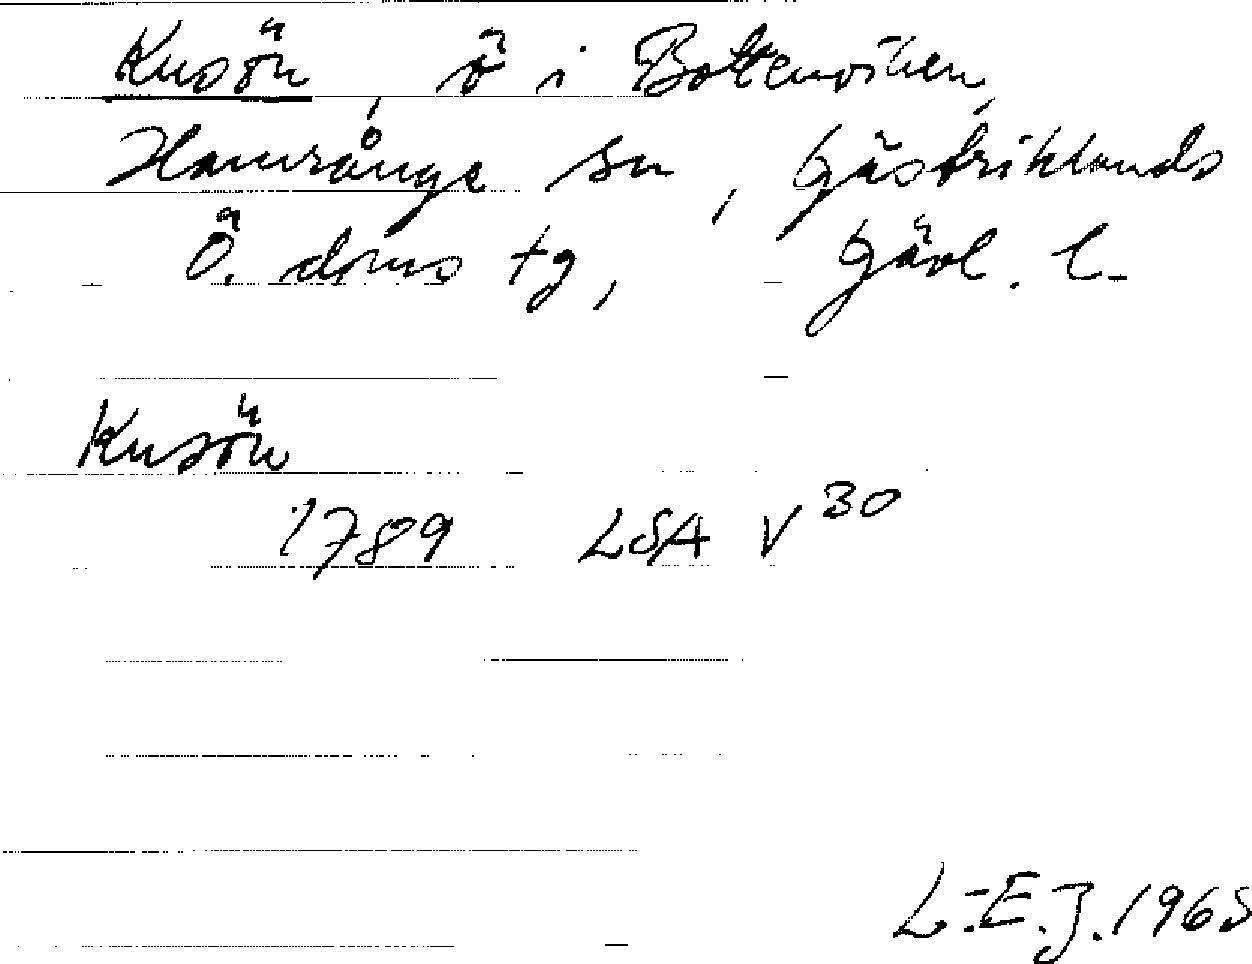 Kusön, ö i Bottenviken,
Hamrånge sn, Gästriklands
Ö. doms tg, Gävl. l.
Kusön
1789 LSA V 30
L.-E.J. 1965